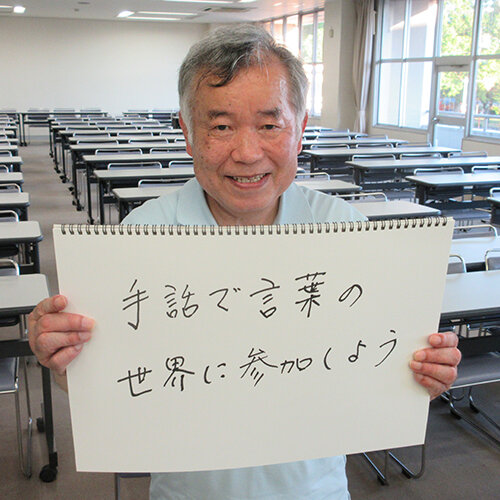 手話で言葉の
世界に参加しよう